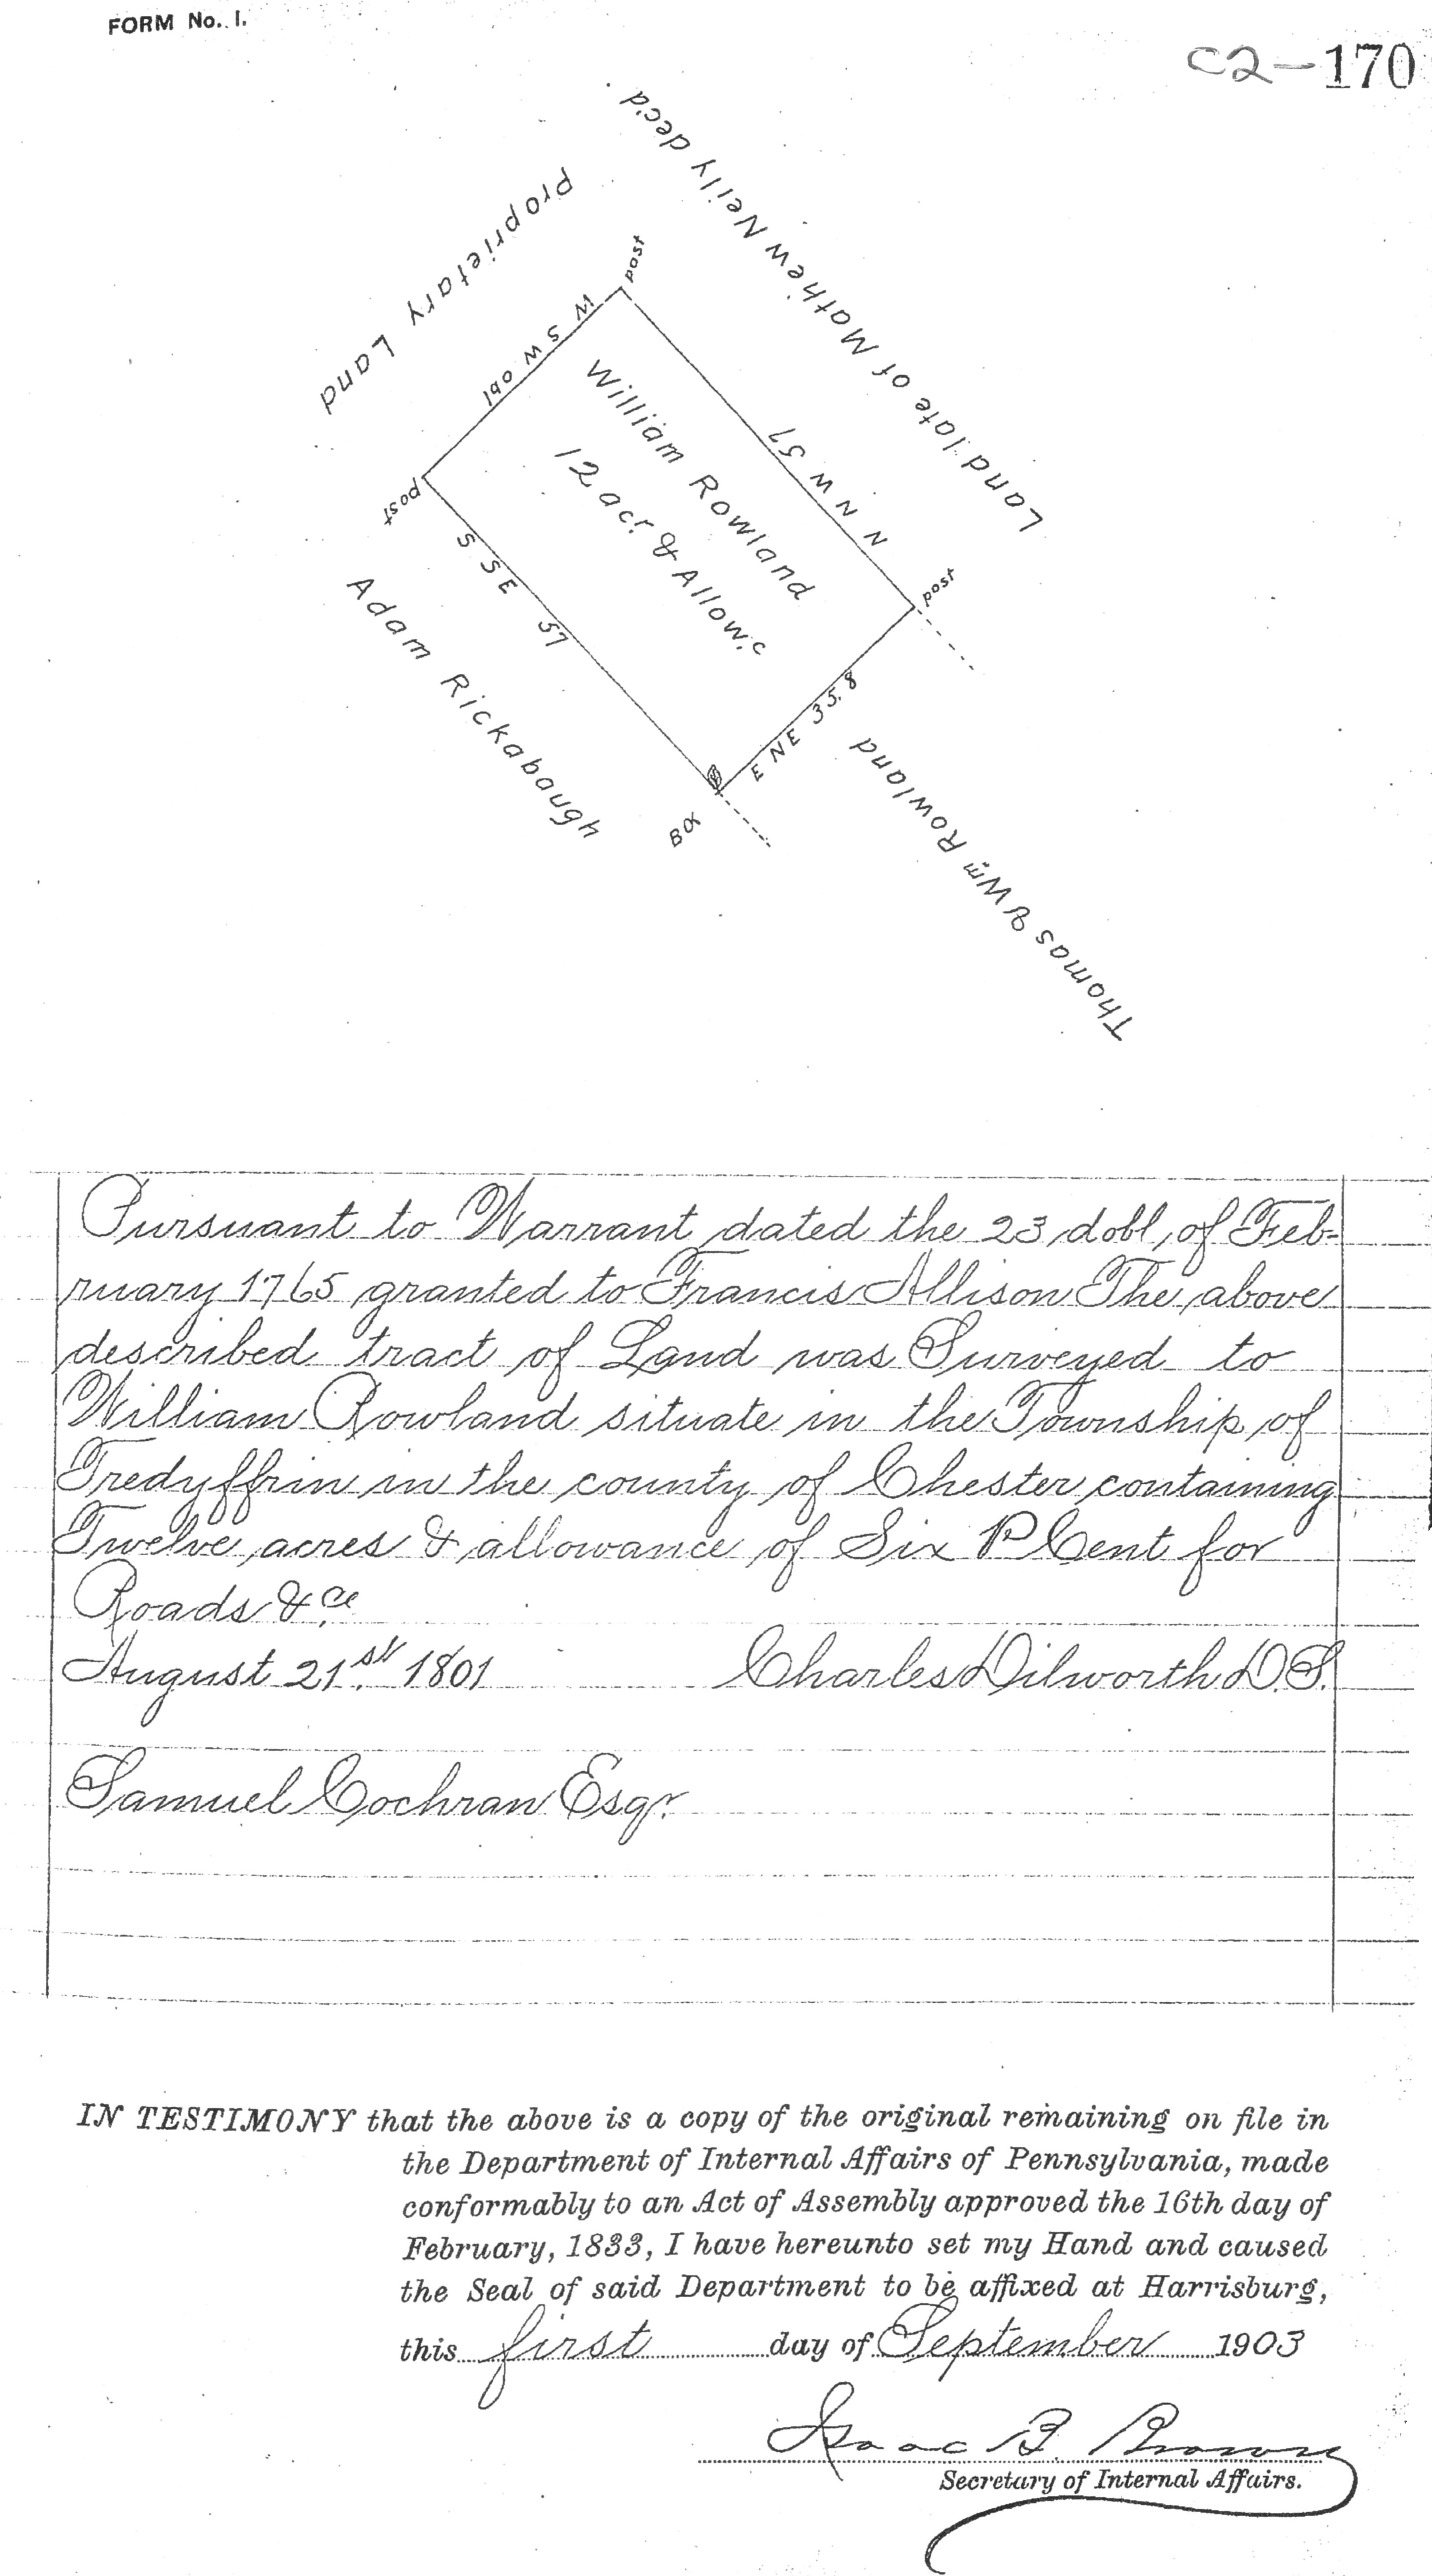 FORM No. 1.
C2-170
Land late of Mathew Neily dec'd
Proprietary Land
post
W S W obl
William Rowland
12 acr. & Allow.c
N N W 57
post
post
S S E 57
Adam Rickabaugh
E N E 35.8
Thomas & Wm Rowland
Pursuant to Warrant dated the 23 dobl, of Feb-
ruary 1765 granted to Francis Allison The above
described tract of Land was Surveyed to
William Rowland situate in the Township of
Tredyffrin in the county of Chester containing
Twelve acres & allowance of Six P Cent for
Roads &ce
August 21st. 1801 Charles Dilworth D.S.
Samuel Cochran Esqr.
IN TESTIMONY that the above is a copy of the original remaining on file in
the Department of Internal Affairs of Pennsylvania, made
conformably to an Act of Assembly approved the 16th day of
February, 1833, I have hereunto set my Hand and caused
the Seal of said Department to be affixed at Harrisburg,
this first day of September 1903
Isaac B. Brown
Secretary of Internal Affairs.